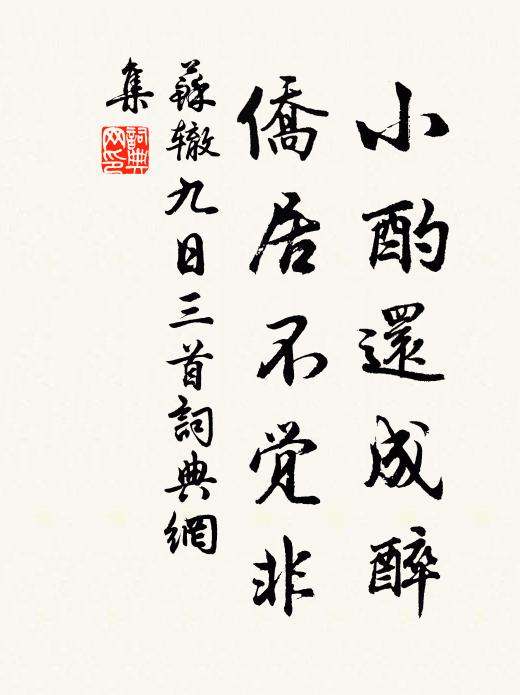 小酌還成醉
僑居不覚非
蘇辙九日三首詞典網
集
詞典网印